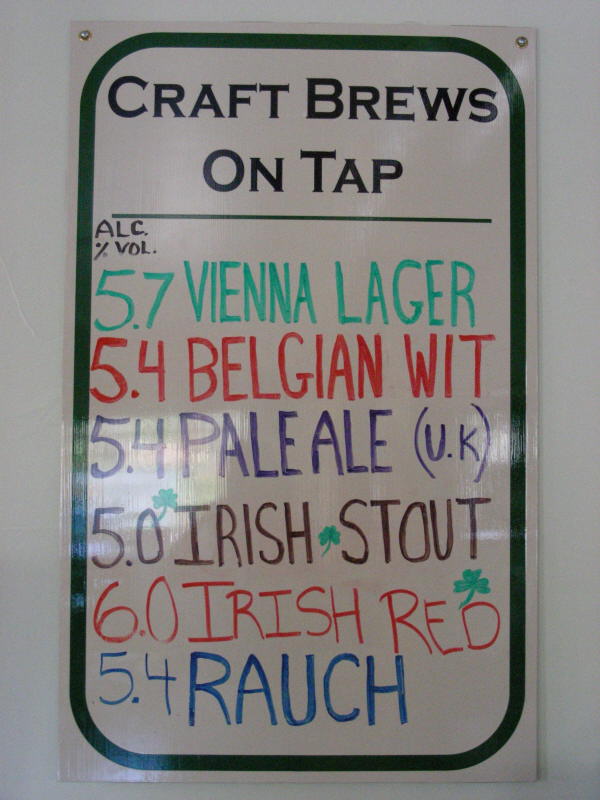 CRAFT BREWS
ON TAP
ALC.
% VOL.
5.7 VIENNA LAGER
5.4 BELGIAN WIT
5.4 PALE ALE (U.K)
5.0 IRISH STOUT
6.0 IRISH RED
5.4 RAUCH